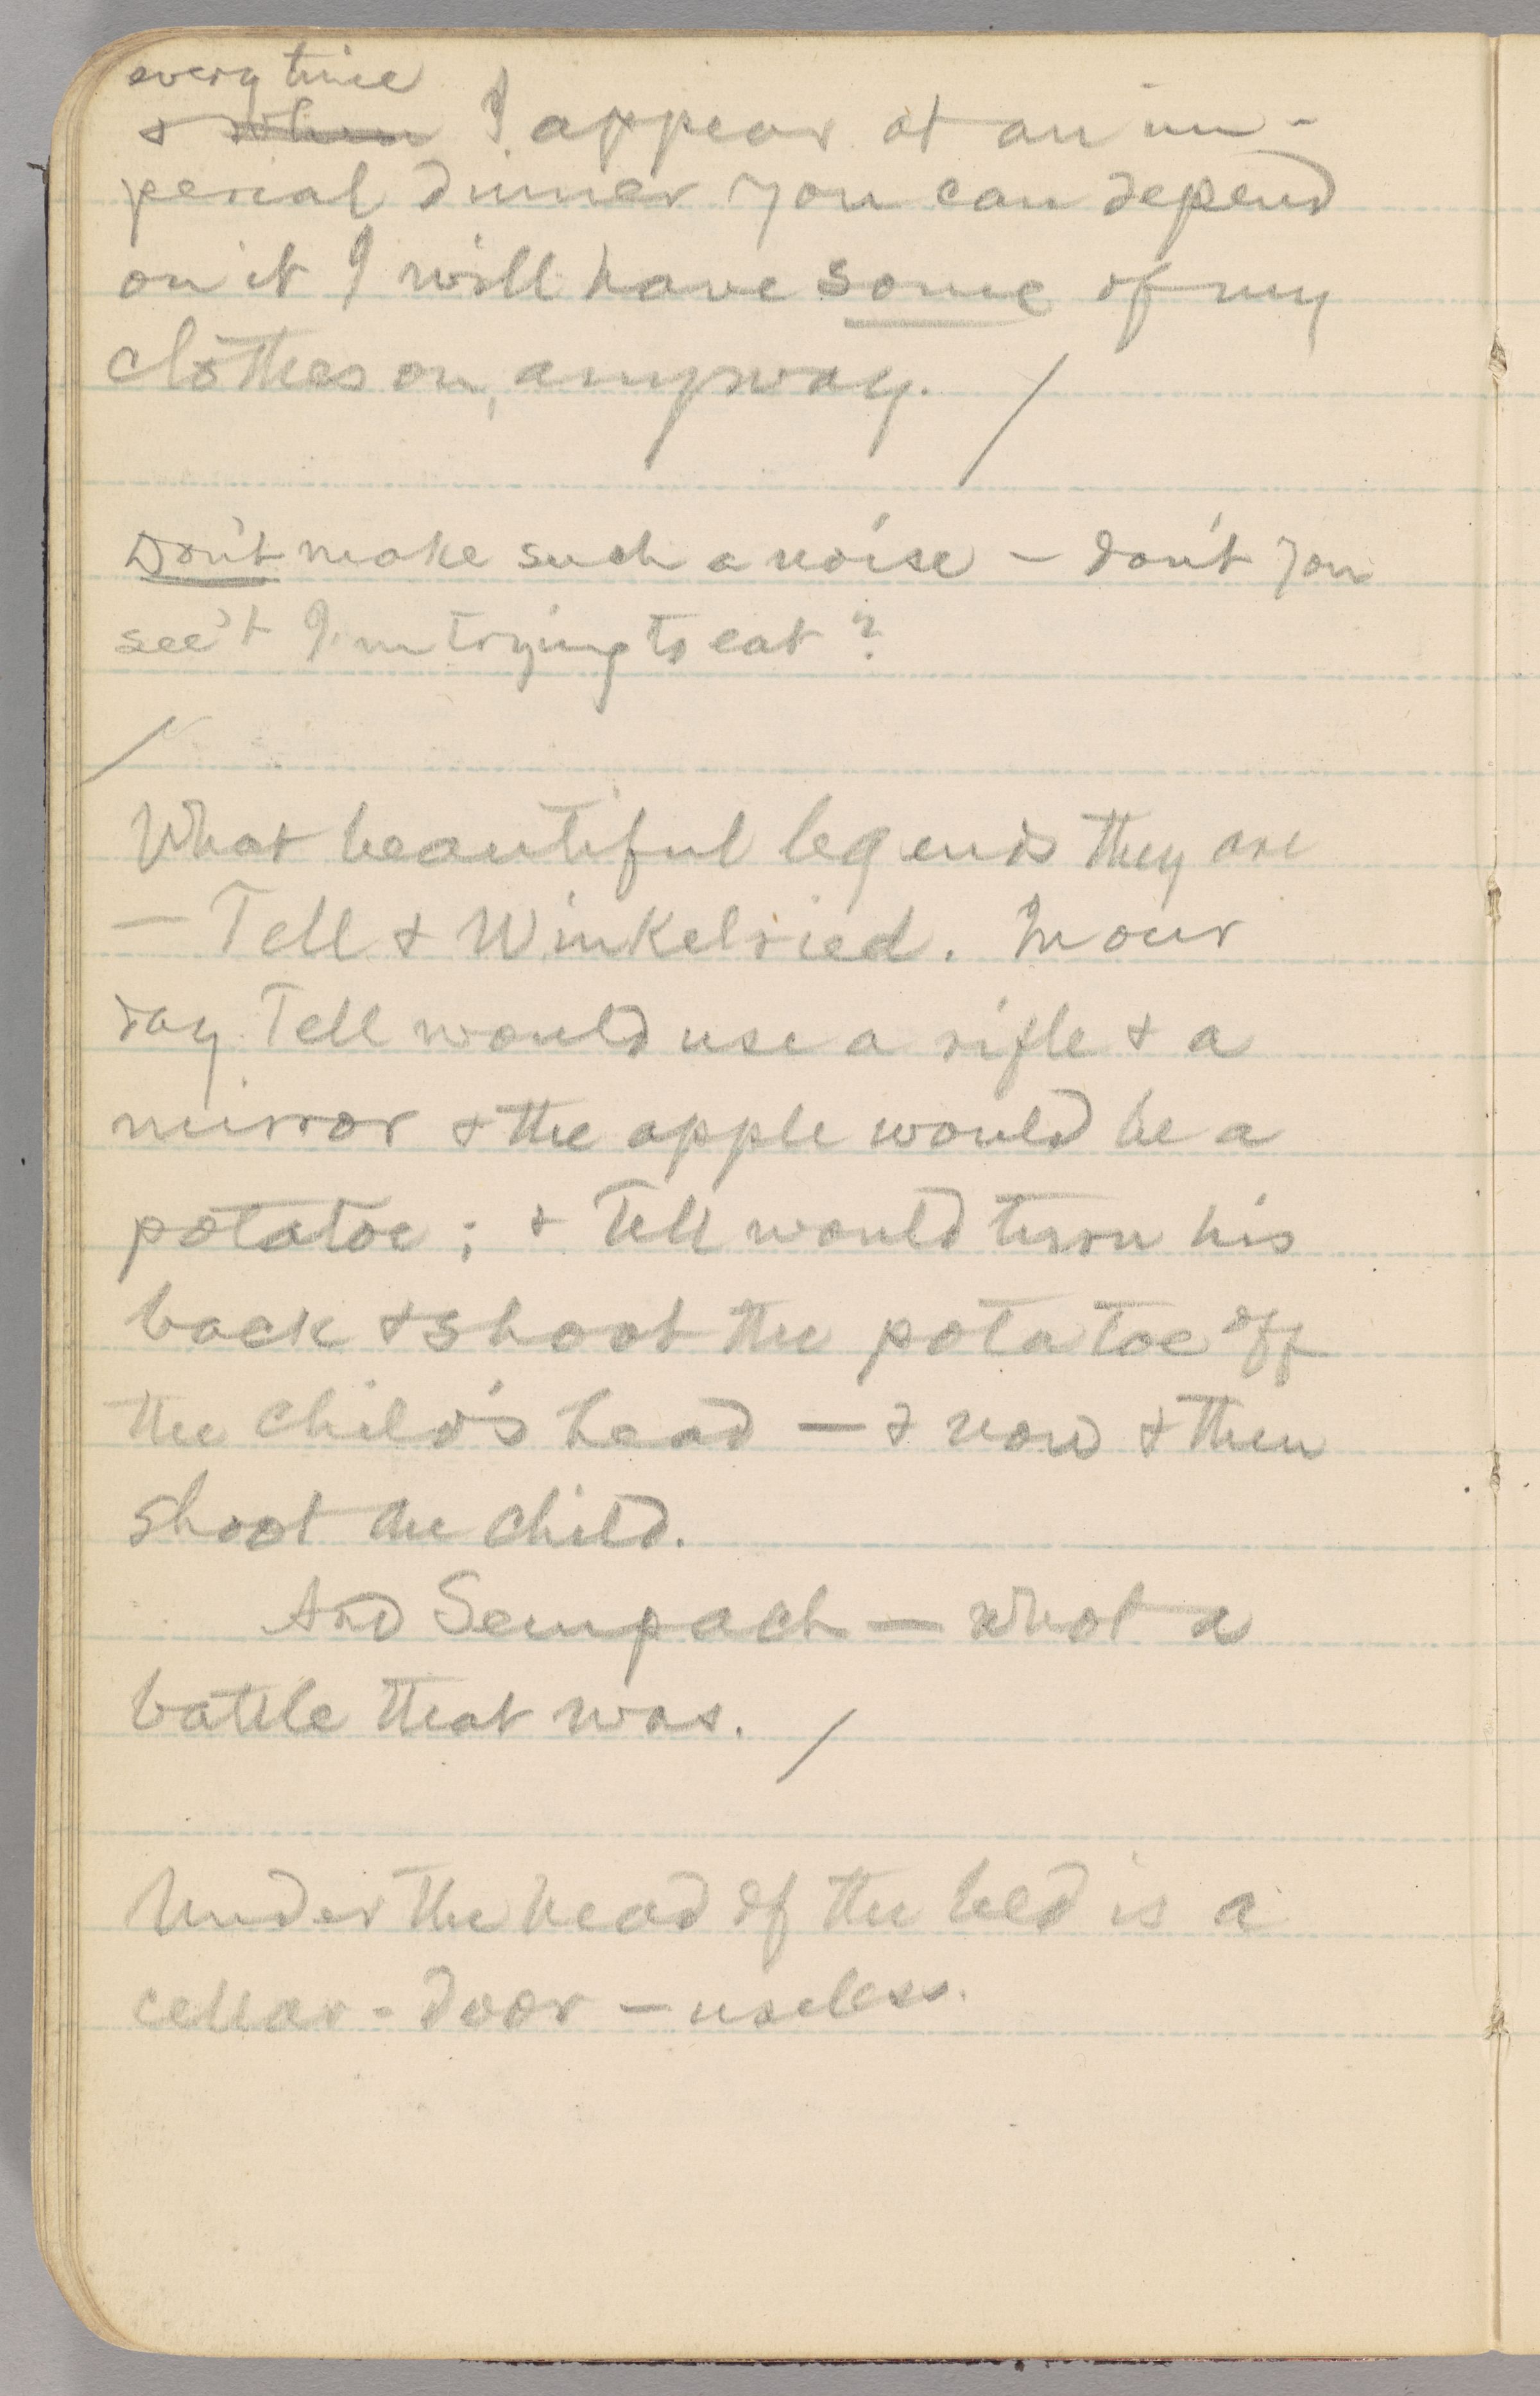 every time
& when I appear at an im-
perial dinner you can depend
on it I will have some of my
clothes on, anyway. /
Don't make such a noise — don't you
see't I'm trying to eat?
/
What beautiful legends they are
— Tell & Winkelried. In our
day Tell would use a rifle & a
mirror & the apple would be a
potatoe; & Tell would turn his
back & shoot the potatoe off
the child's head — & now & then
shoot the child.
And Sempach — what a
battle that was. /
Under the head of the bed is a
cellar-door — useless.